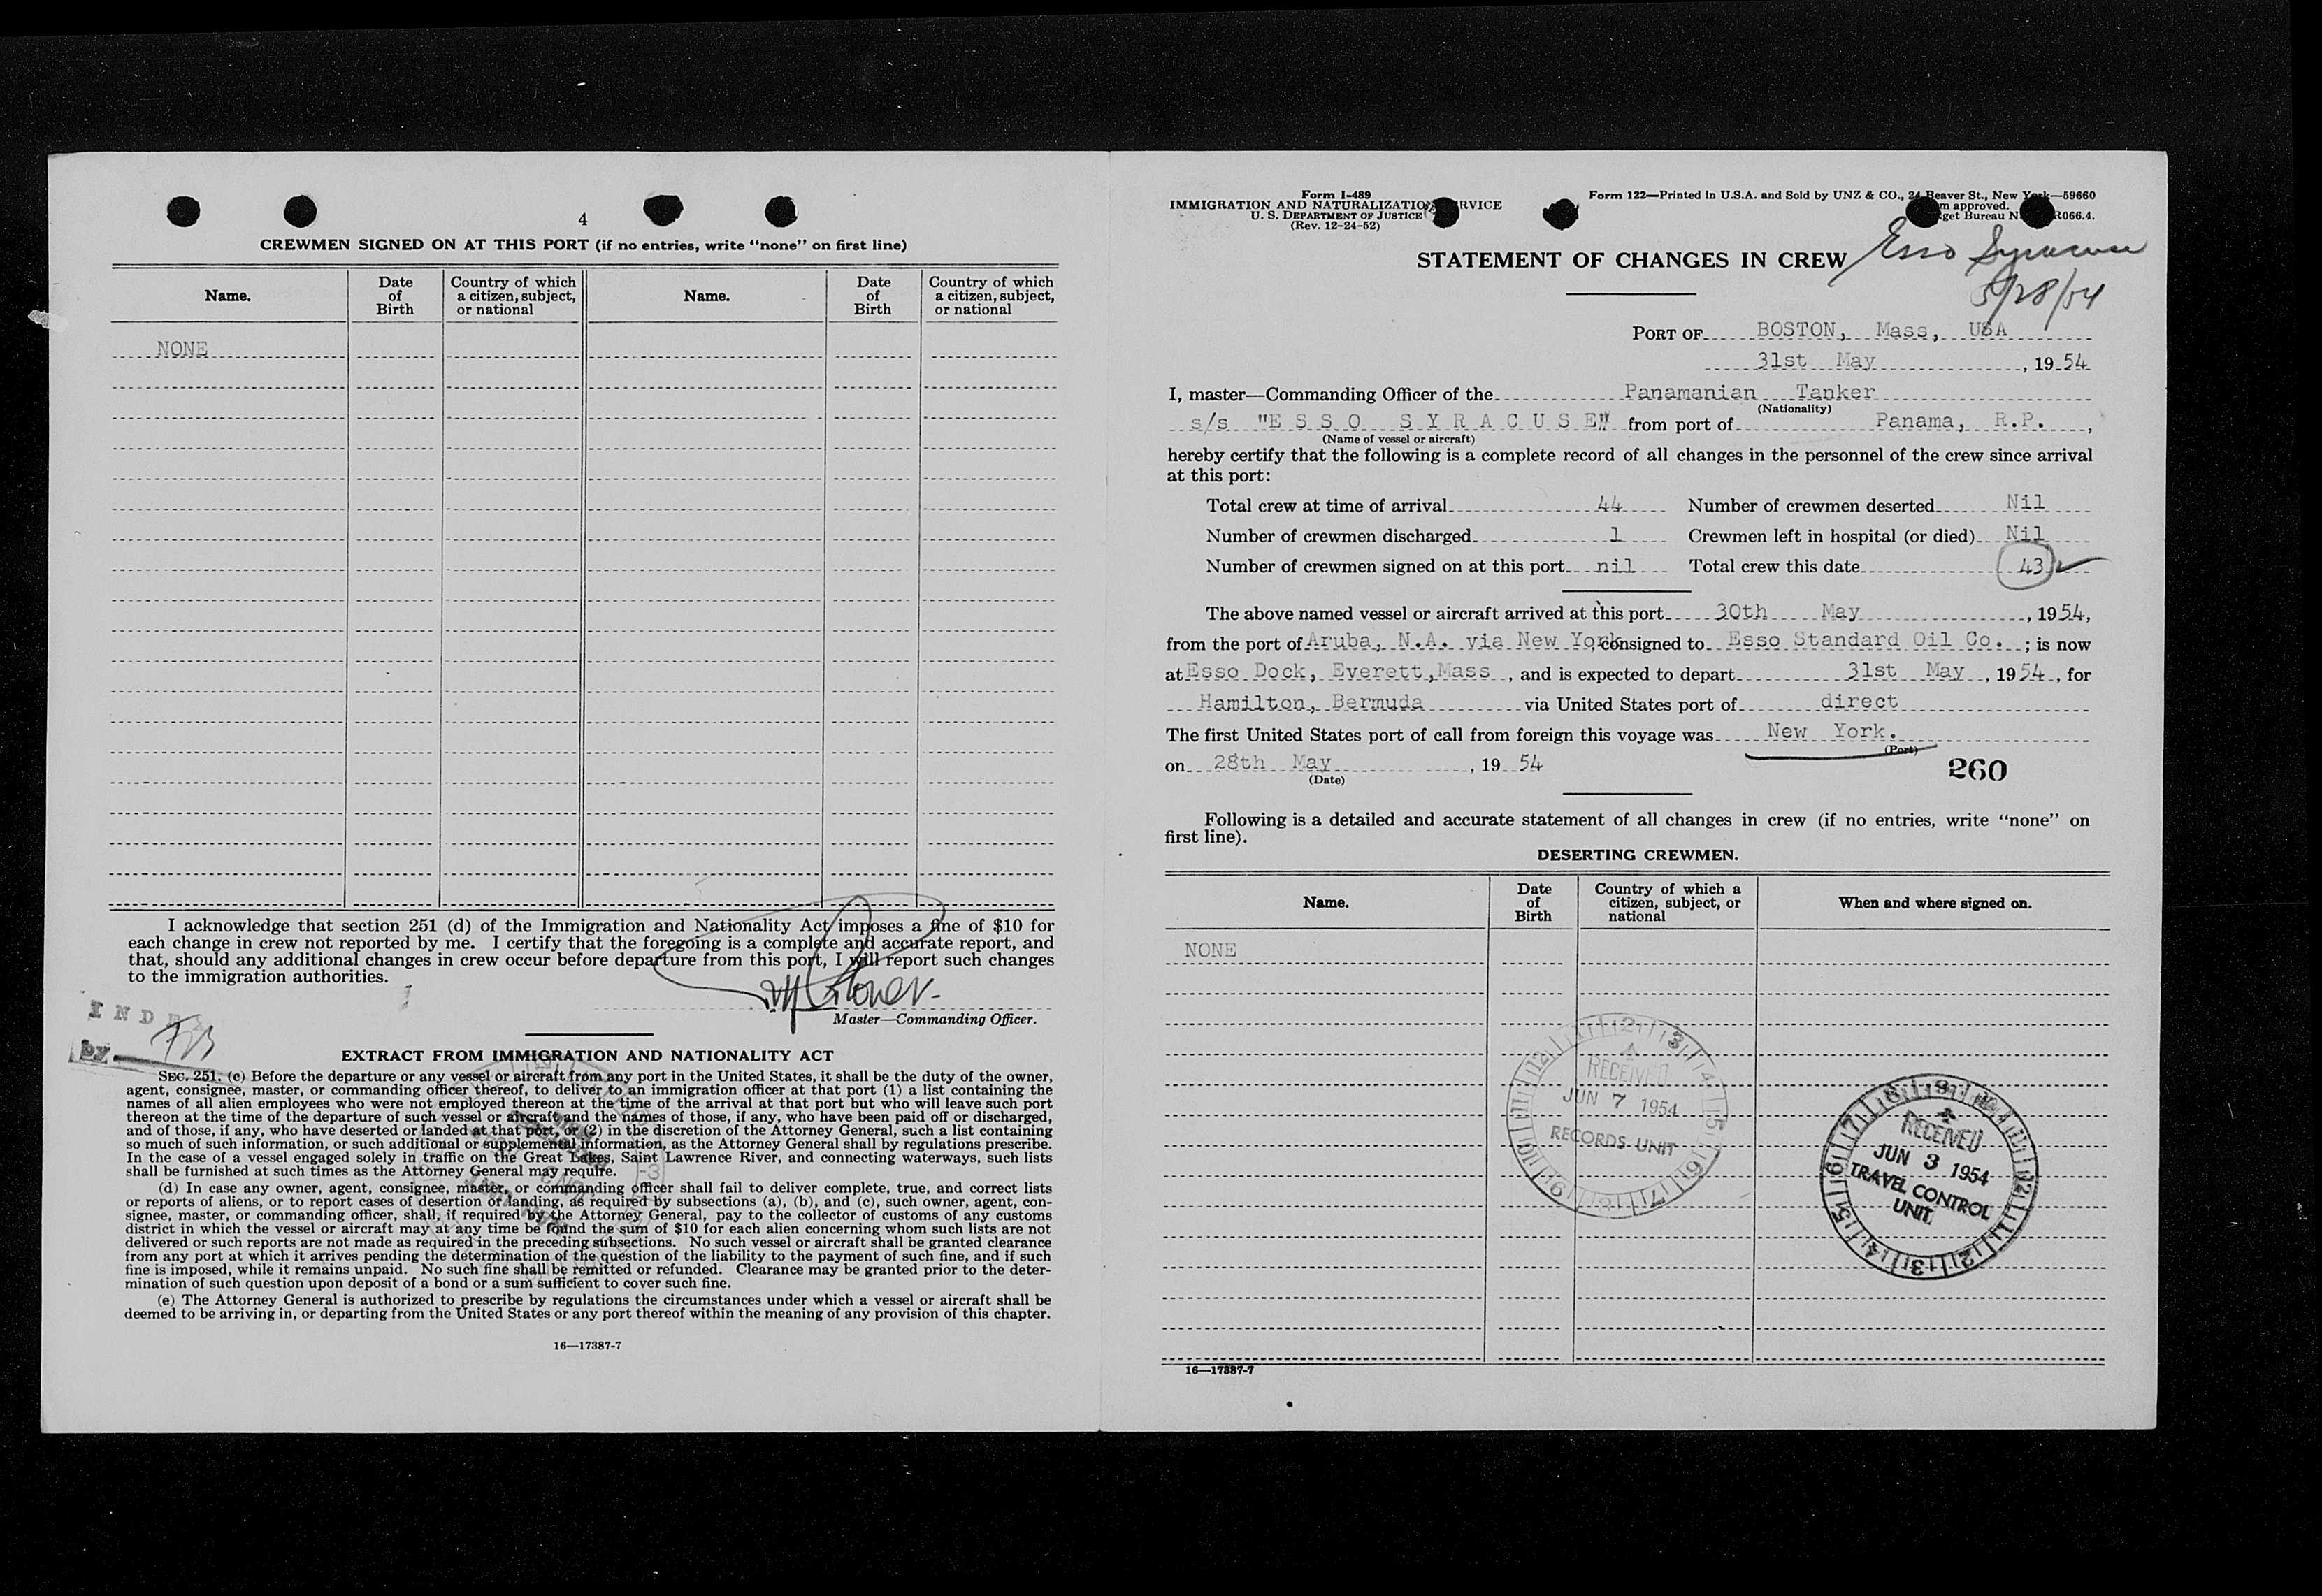 4
CREWMEN SIGNED ON AT THIS PORT (if no entries, write “none” on first line)
Name.
Date of Birth
Country of which a citizen, subject, or national
Name.
Date of Birth
Country of which a citizen, subject, or national
NONE
I acknowledge that section 251 (d) of the Immigration and Nationality Act imposes a fine of $10 for
each change in crew not reported by me. I certify that the foregoing is a complete and accurate report, and
that, should any additional changes in crew occur before departure from this port, I will report such changes
to the immigration authorities.
Master—Commanding Officer.
INDEX
by
EXTRACT FROM IMMIGRATION AND NATIONALITY ACT
SEC. 251. (c) Before the departure or any vessel or aircraft from any port in the United States, it shall be the duty of the owner,
agent, consignee, master, or commanding officer thereof, to deliver to an immigration officer at that port (1) a list containing the
names of all alien employees who were not employed thereon at the time of the arrival at that port but who will leave such port
thereon at the time of the departure of such vessel or aircraft and the names of those, if any, who have been paid off or discharged,
and of those, if any, who have deserted or landed at that port, or (2) in the discretion of the Attorney General, such a list containing
so much of such information, or such additional or supplemental information, as the Attorney General shall by regulations prescribe.
In the case of a vessel engaged solely in traffic on the Great Lakes, Saint Lawrence River, and connecting waterways, such lists
shall be furnished at such times as the Attorney General may require.
(d) In case any owner, agent, consignee, master, or commanding officer shall fail to deliver complete, true, and correct lists
or reports of aliens, or to report cases of desertion or landing, as required by subsections (a), (b), and (c), such owner, agent, con-
signee, master, or commanding officer, shall, if required by the Attorney General, pay to the collector of customs of any customs
district in which the vessel or aircraft may at any time be found the sum of $10 for each alien concerning whom such lists are not
delivered or such reports are not made as required in the preceding subsections. No such vessel or aircraft shall be granted clearance
from any port at which it arrives pending the determination of the question of the liability to the payment of such fine, and if such
fine is imposed, while it remains unpaid. No such fine shall be remitted or refunded. Clearance may be granted prior to the deter-
mination of such question upon deposit of a bond or a sum sufficient to cover such fine.
(e) The Attorney General is authorized to prescribe by regulations the circumstances under which a vessel or aircraft shall be
deemed to be arriving in, or departing from the United States or any port thereof within the meaning of any provision of this chapter.
16—17387-7
Form I-489
IMMIGRATION AND NATURALIZATION SERVICE
U. S. DEPARTMENT OF JUSTICE
(Rev. 12-24-52)
Form 122—Printed in U.S.A. and Sold by UNZ & CO., 24 Beaver St., New York—59660
approved.
get Bureau R066.4.
STATEMENT OF CHANGES IN CREW
Esso Syracuse
5/28/54
PORT OF BOSTON, Mass, USA
31st May, 1954
I, master—Commanding Officer of the Panamanian Tanker
(Nationality)
s/s "E S S O S Y R A C U S E" from port of Panama, R.P.,
(Name of vessel or aircraft)
hereby certify that the following is a complete record of all changes in the personnel of the crew since arrival
at this port:
Total crew at time of arrival 44 Number of crewmen deserted Nil
Number of crewmen discharged 1 Crewmen left in hospital (or died) Nil
Number of crewmen signed on at this port nil Total crew this date 43
The above named vessel or aircraft arrived at this port 30th May, 1954,
from the port of Aruba, N.A. via New York consigned to Esso Standard Oil Co. ; is now
at Esso Dock, Everett, Mass, and is expected to depart 31st May, 1954, for
Hamilton, Bermuda via United States port of direct
The first United States port of call from foreign this voyage was New York.
(Port)
on 28th May, 19 54
(Date)
260
Following is a detailed and accurate statement of all changes in crew (if no entries, write “none” on
first line).
DESERTING CREWMEN.
Name.
Date of Birth
Country of which a citizen, subject, or national
When and where signed on.
NONE
RECEIVED
JUN 7 1954
RECORDS UNIT
RECEIVED
JUN 3 1954
TRAVEL CONTROL
UNIT
16—17387-7